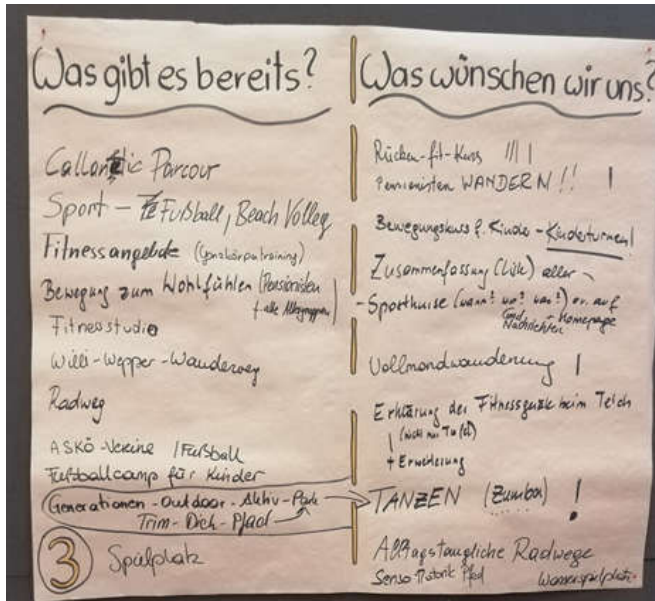 Was gibt es bereits?
Callanetic Parcour
Sport - Fußball, Beach Volley
Fitnessangebote (Ganzkörpertraining)
Bewegung zum Wohlfühlen (Pensionisten
+ alle Altersgruppen)
Fitnesstudio
Willi-Wepper-Wanderweg
Radweg
ASKÖ-Vereine /Fußball
Fußballcamp für Kinder
Generationen-Outdoor-Aktiv-Park
Trim-Dich-Pfad
3 Spielplatz
Was wünschen wir uns?
Rücken-fit-Kurs IIII
Pensionisten WANDERN !! !
Bewegungskurs f. Kinder - Kinderturnen!
Zusammenfassung (Liste) aller
- Sportkurse (wann? wo? was?) ev. auf
Gmd Nachrichten + homepage
Vollmondwanderung !
Erklärung der Fitnessgeräte beim Teich
(nicht nur Tafel)
+ Erweiterung
TANZEN (Zumba) !
Alltagstaugliche Radwege
Pfad Wasserspielplatz